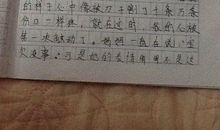 的样子心中像被刀子割了千条万条
伤口一样疼,就在这时,我的心被
第一次触动了。妈妈一直在说:宝
没事,可是她的表情用不是这